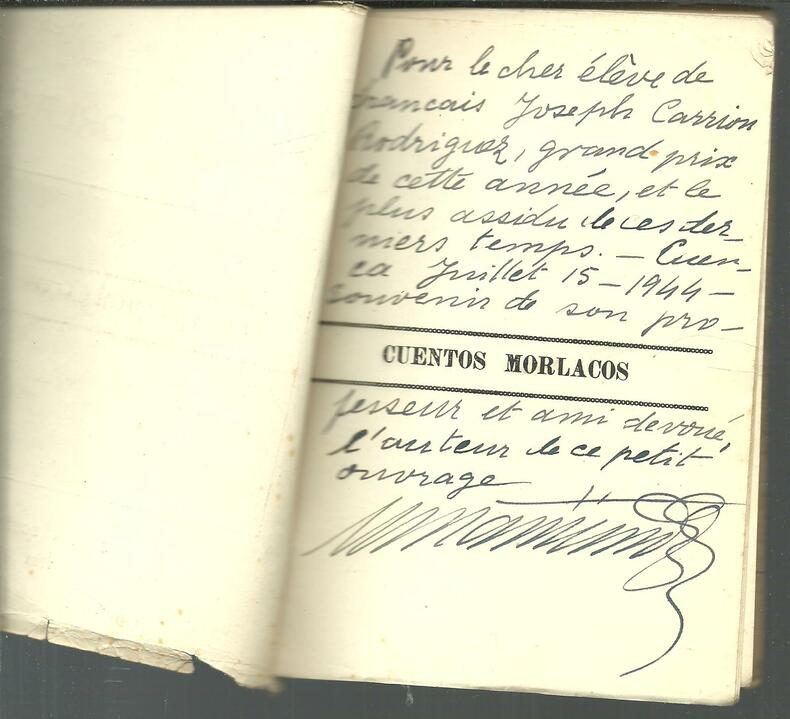 Pour le cher élève de
francais Joseph Carrion
Rodriguez, grand prix
de cette année, et le
plus assidu de ces der-
niers temps. — Cuen-
ca Juillet 15 - 1944 -
souvenir de son pro-
CUENTOS MORLACOS
fesseur et ami devoué,
l'auteur de ce petit
ouvrage